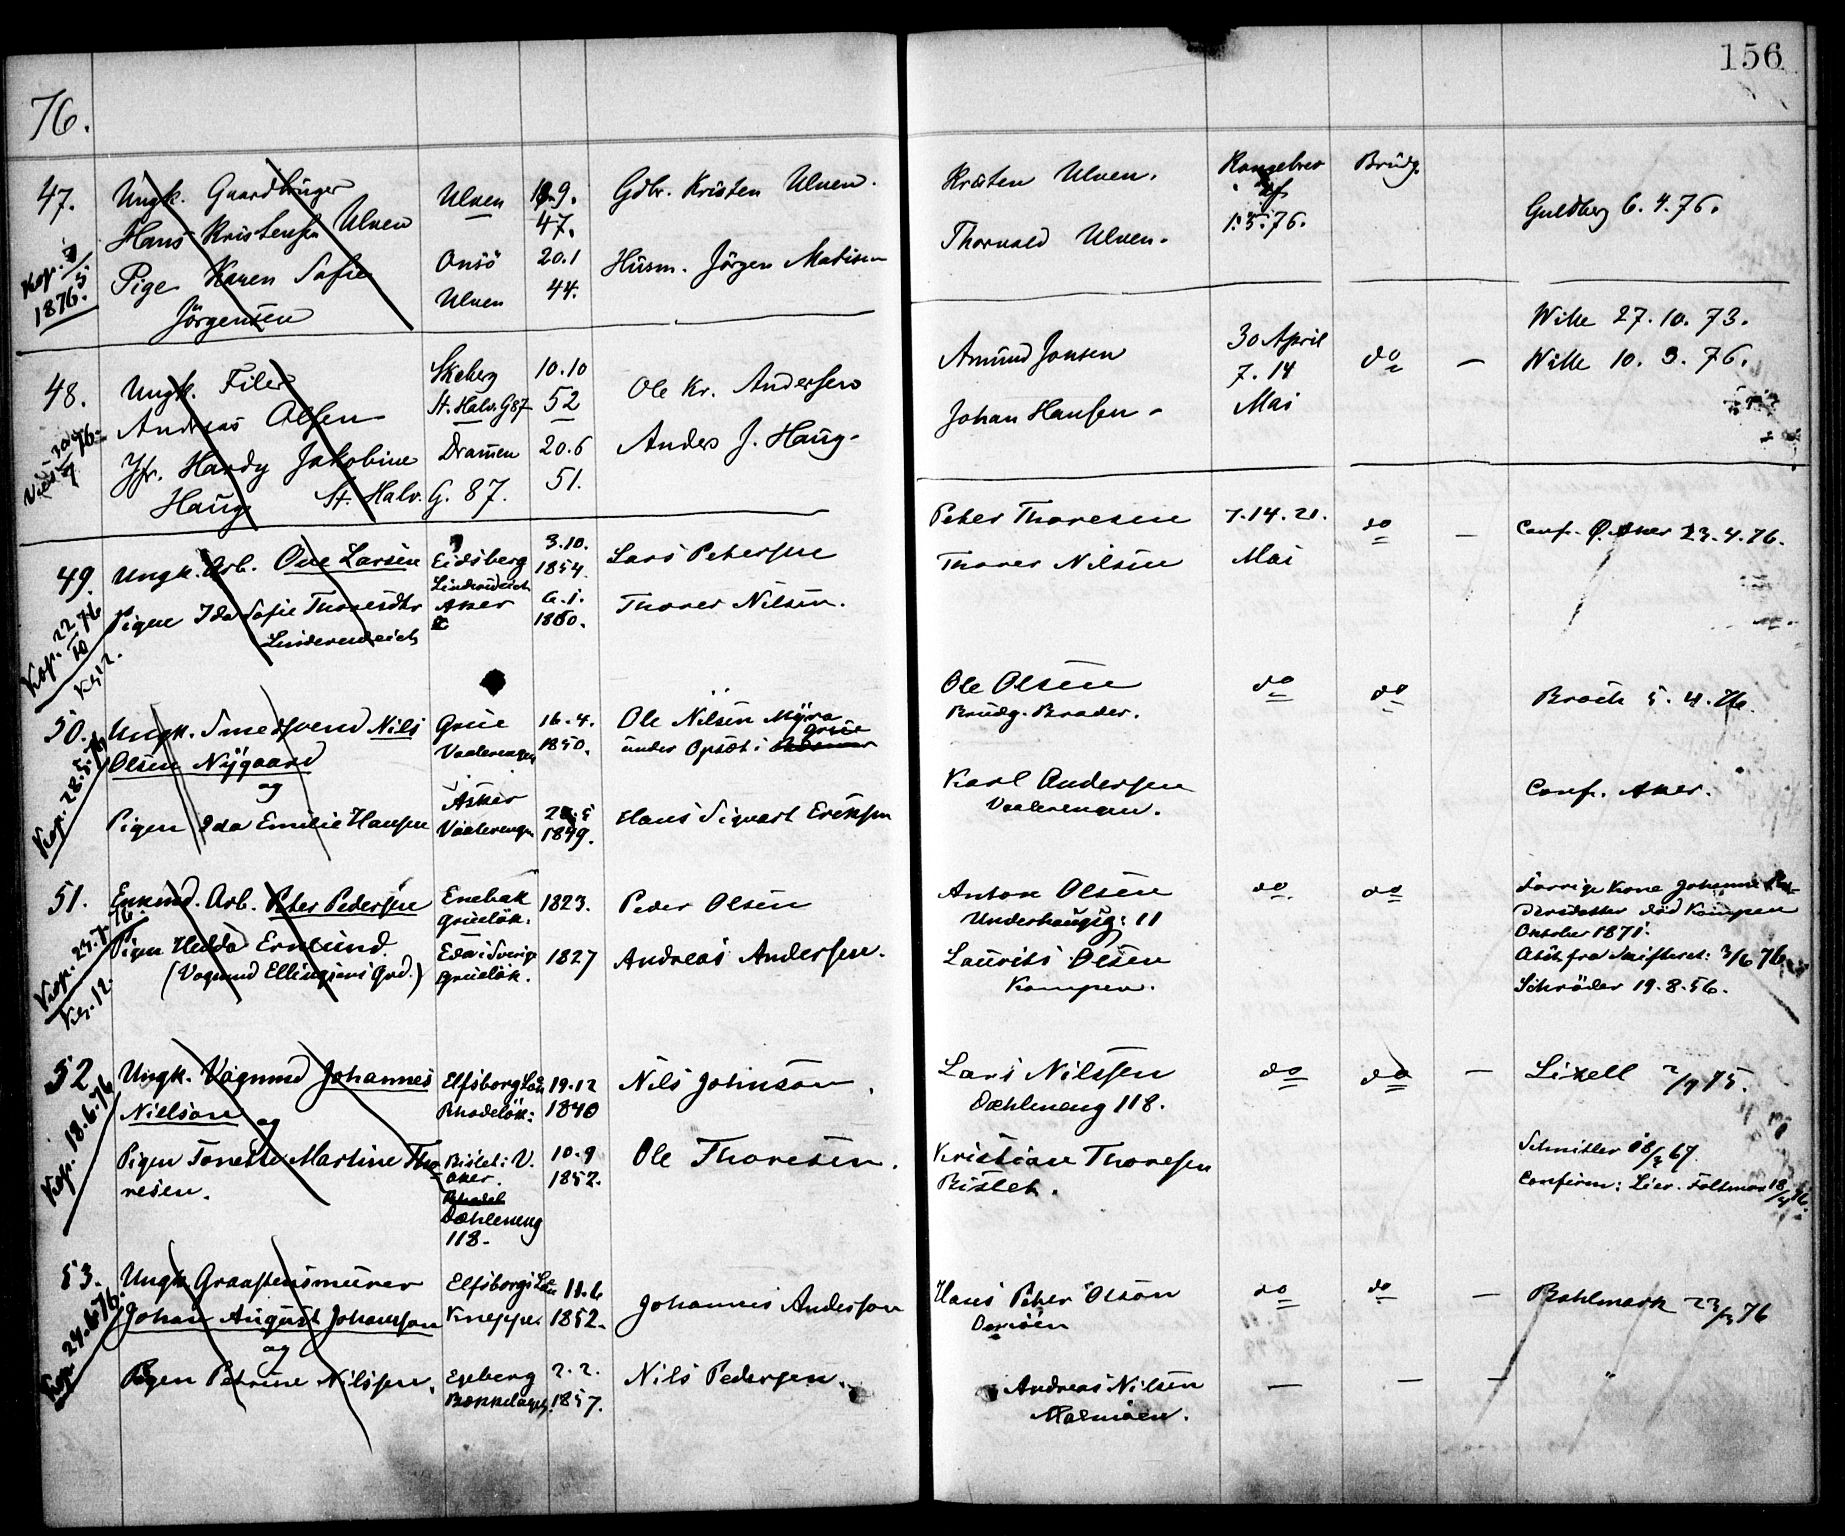 156
76.
47.
Ungk. Gaardbruger
Hans Kristensen Ulven
Pige Karen Sofie
Jörgensen
Kop.
1876.
Ulven
Onsö
Ulven
47.
20.1
44.
Gdbr. Kristen Ulven.
Husm. Jörgen Matisen
Kristen Ulven.
Thorvald Ulven.
1.3.76.
Brudg.
Guldberg 6.4.76.
48.
Ungk. Filer
Andreas Olsen
Jfr. Hardy Jakobine
Haug St. Halv. G. 87.
Skeberg
St. Halv. G 87
Drammen
10.10
52
20.6
51.
Ole Kr. Andersen
Anders J. Haug.
Amund Jonsen
Johan Hansen
30 April
7. 14
Mai
do
—
Wille 27.10.73.
Wille 10.3.76.
49.
Ungk. Arb. Ole Larsen
Pigen Ida Sofie Thoresdtr
Linderudeich
Kop. 22/10 76
Kl. 12.
Eidsberg
Linderudeich
Aker
3.10.
1854.
6.1.
1850.
Lars Petersen
Thorer Nilsen.
Peter Thoresen
Thorer Nilsen
7.14.21.
Mai
do
—
Conf. Ø. Aker 23.4.76.
50.
Ungk. Smedsvend Nils
Olsen Nygaard
og
Pigen Ida Emilie Hansen
Kop. 28.5.76
Grue
Vaalerengen
Asker
Vaalerengen
16.4.
1850.
1849.
Ole Nilsen Myra
under Opsæt i Grue
Hans Sigvart Eriksen
Ole Olsen
Brudg. Broder.
Karl Andersen
Vaalerengen.
do
do
Broch 5.4.76.
Conf. Aker.
51.
Enkmd. Arb. Peter Pedersen
Pigen Hedda Ernlund
(Vognmd Ellingsens Grd.)
Kop. 23.7.76.
Kl. 12.
Enebak
Grueløk.
Eda i Sverig
Grueløk.
1823.
1827
Peder Olsen
Andreas Andersen.
Anton Olsen
Underhaugsg: 11
Laurits Olsen
Kampen.
do.
do
Forrige Kone Johanne Pe-
dersdatter död Kampen
Oktober 1871.
Atst fra Skifteret: 3/6 76
Schröder 19.8.56.
52
Ungk. Vognmd Johannes
Nielson
og
Pigen Tonette Martine Tho-
resen.
Kop. 18.6.76
Elfsborg Län
Rhodeløk:
Bislet: V.
Aker.
Dæhleneng
118.
19.12
1840
10.9
1852.
Nils Johnson
Ole Thoresen.
Lars Nilssen
Dæhleneng 118.
Kristian Thoresen
Bislet.
do
do
—
Lixell 2/9 75.
Schnitler 18/2 67.
Confirm: Lier. Foltmar 18/4 76.
53.
Ungk Graastensmurer
Johan August Johansson
og
Pigen Petrine Nilssen.
Kop. 24.6.76.
Elfsborgs Län
Kneppe
Egeberg
Bækkelaget.
11.6
1852.
2.2.
1857.
Johannes Anderson
Nils Pedersen.
Hans Peter Olson
Ormöen
Andreas Nilsen
Malmöen.
do
do
—
Bohlmark 23/3 76
— — — "